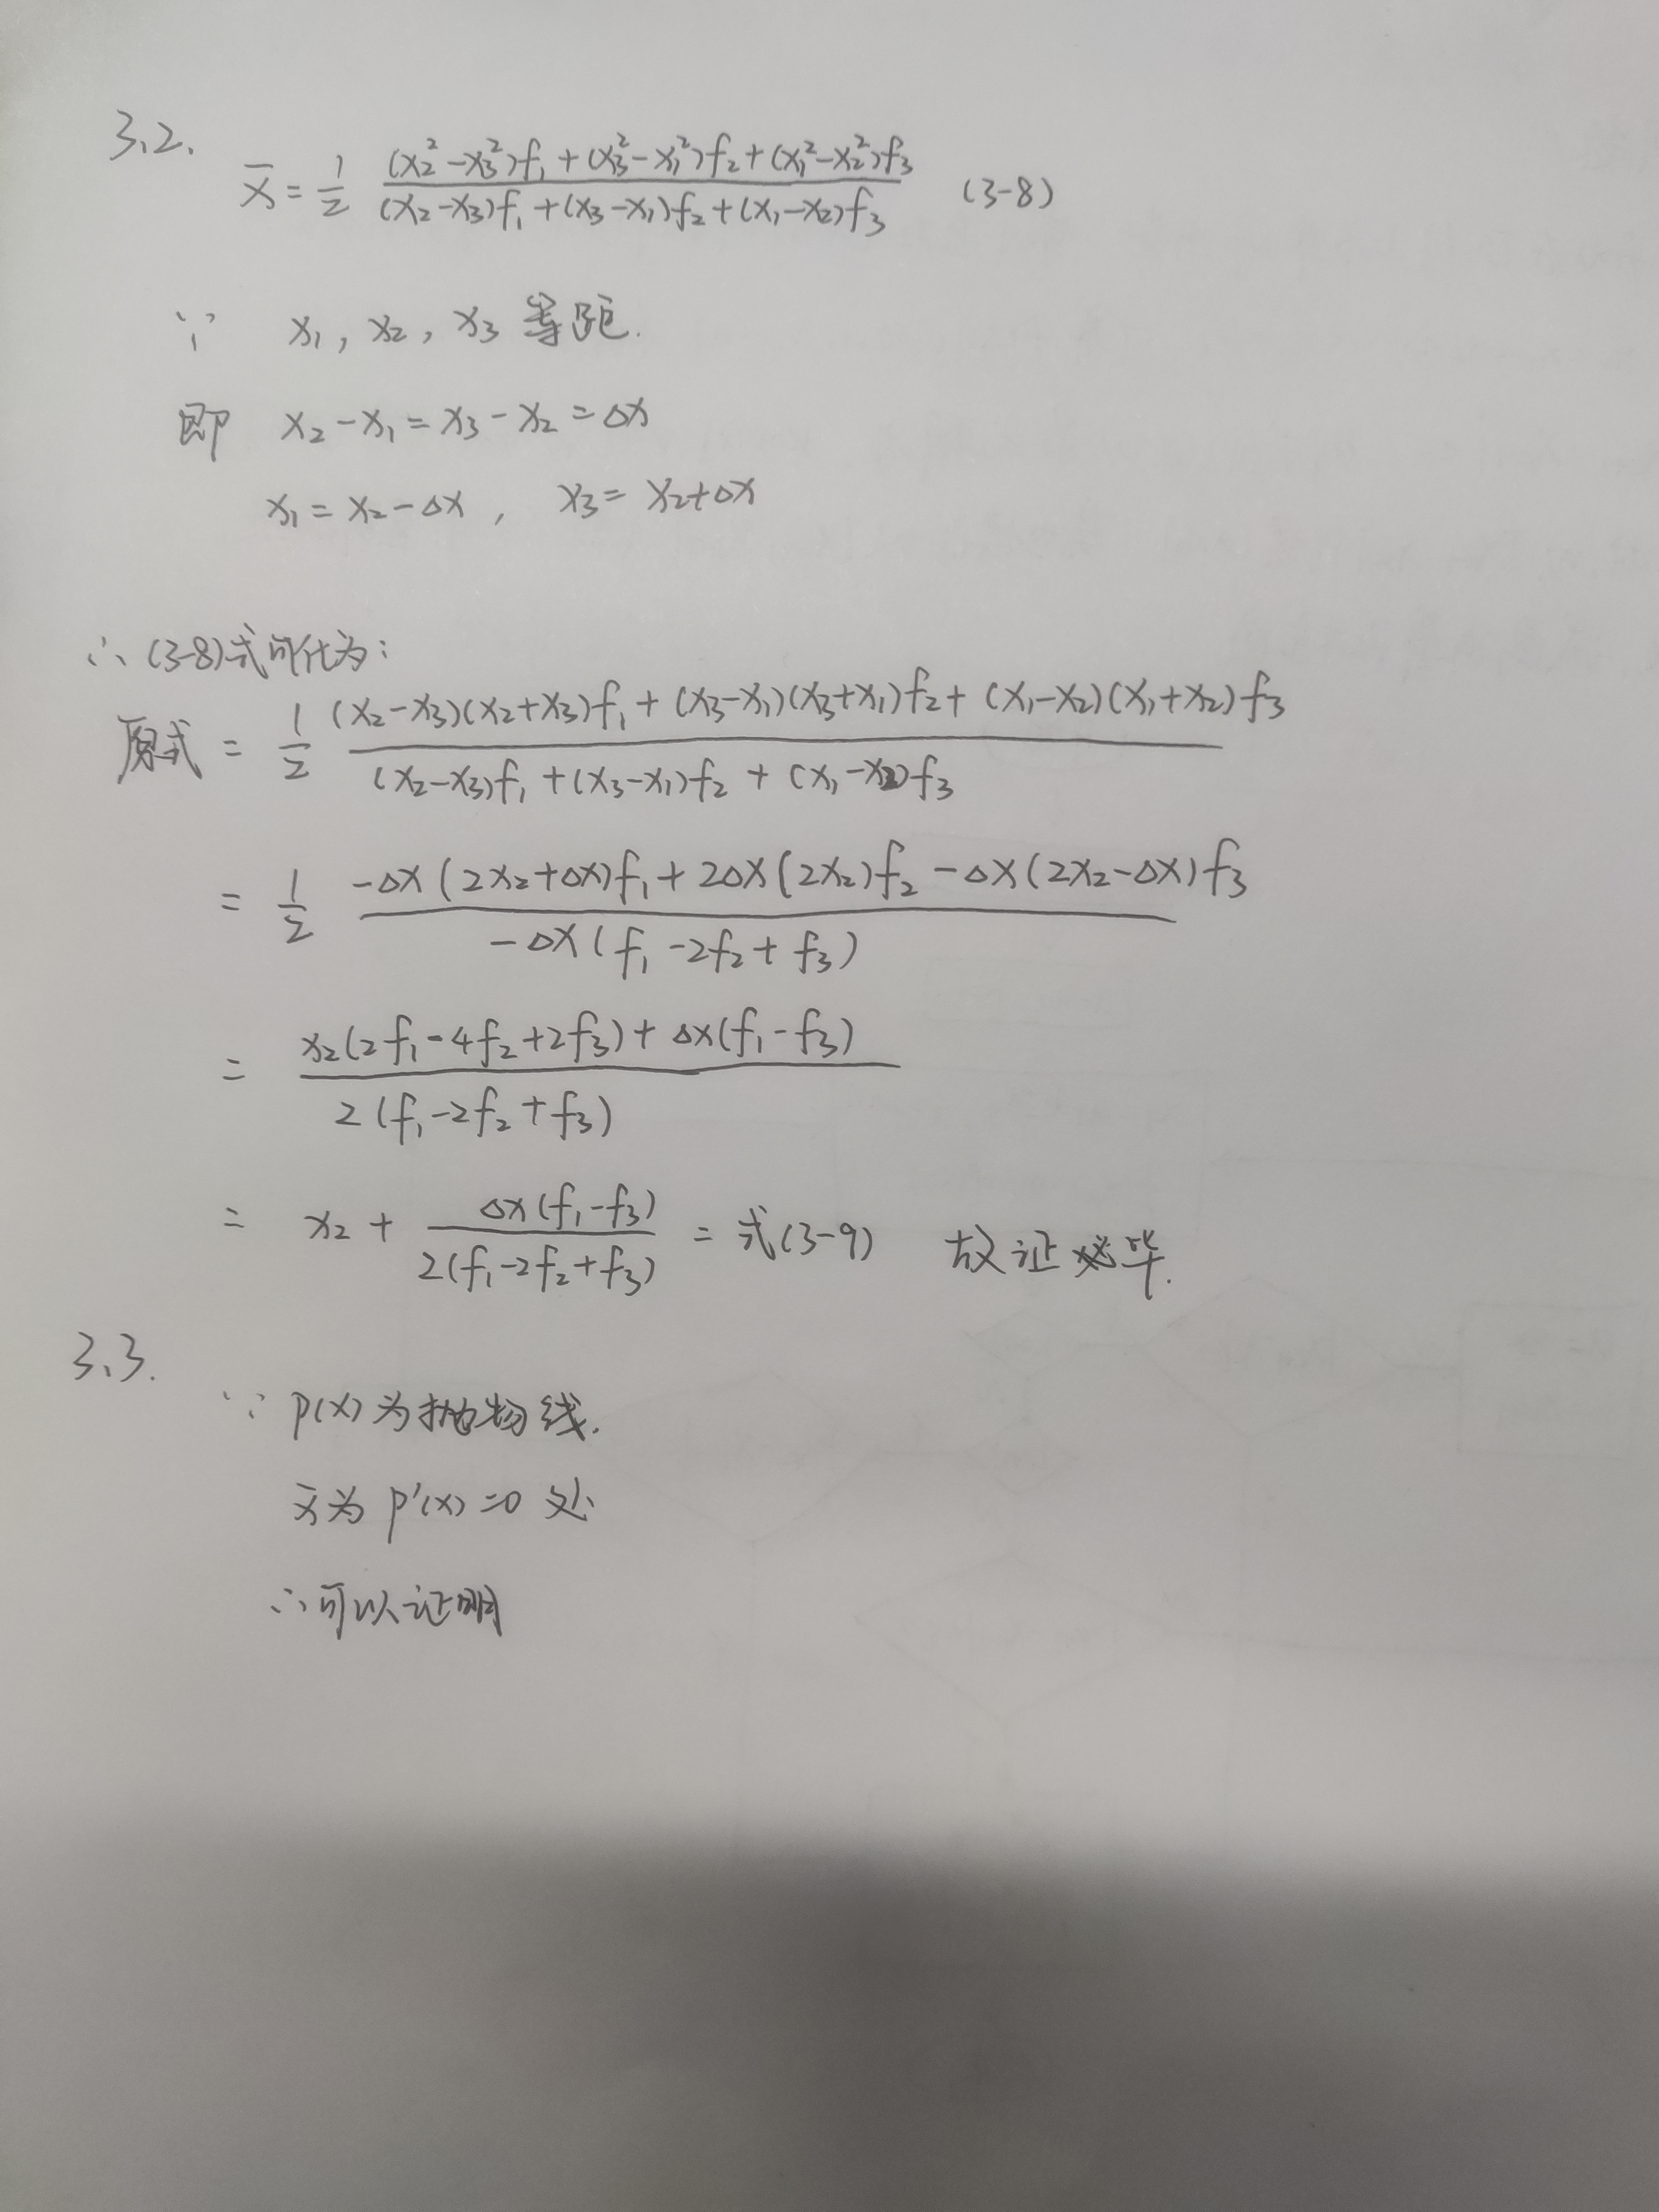 3、2.
x̄ = 1/2 ((x₂²-x₃²)f₁+(x₃²-x₁²)f₂+(x₁²-x₂²)f₃)/((x₂-x₃)f₁+(x₃-x₁)f₂+(x₁-x₂)f₃) (3-8)
∵ x₁, x₂, x₃ 等距.
即 x₂-x₁=x₃-x₂=△x
x₁=x₂-△x, x₃=x₂+△x
∴(3-8)式可化为:
原式 = 1/2 ((x₂-x₃)(x₂+x₃)f₁+(x₃-x₁)(x₃+x₁)f₂+(x₁-x₂)(x₁+x₂)f₃)/((x₂-x₃)f₁+(x₃-x₁)f₂+(x₁-x₂)f₃)
= 1/2 (-△x(2x₂+△x)f₁+2△x(2x₂)f₂-△x(2x₂-△x)f₃)/(-△x(f₁-2f₂+f₃))
= (x₂(2f₁-4f₂+2f₃)+△x(f₁-f₃))/(2(f₁-2f₂+f₃))
= x₂+(△x(f₁-f₃))/(2(f₁-2f₂+f₃)) = 式(3-9) 故证毕.
3、3.
∵ p(x)为抛物线.
x̄为 p'(x)=0 处
∴可以证明